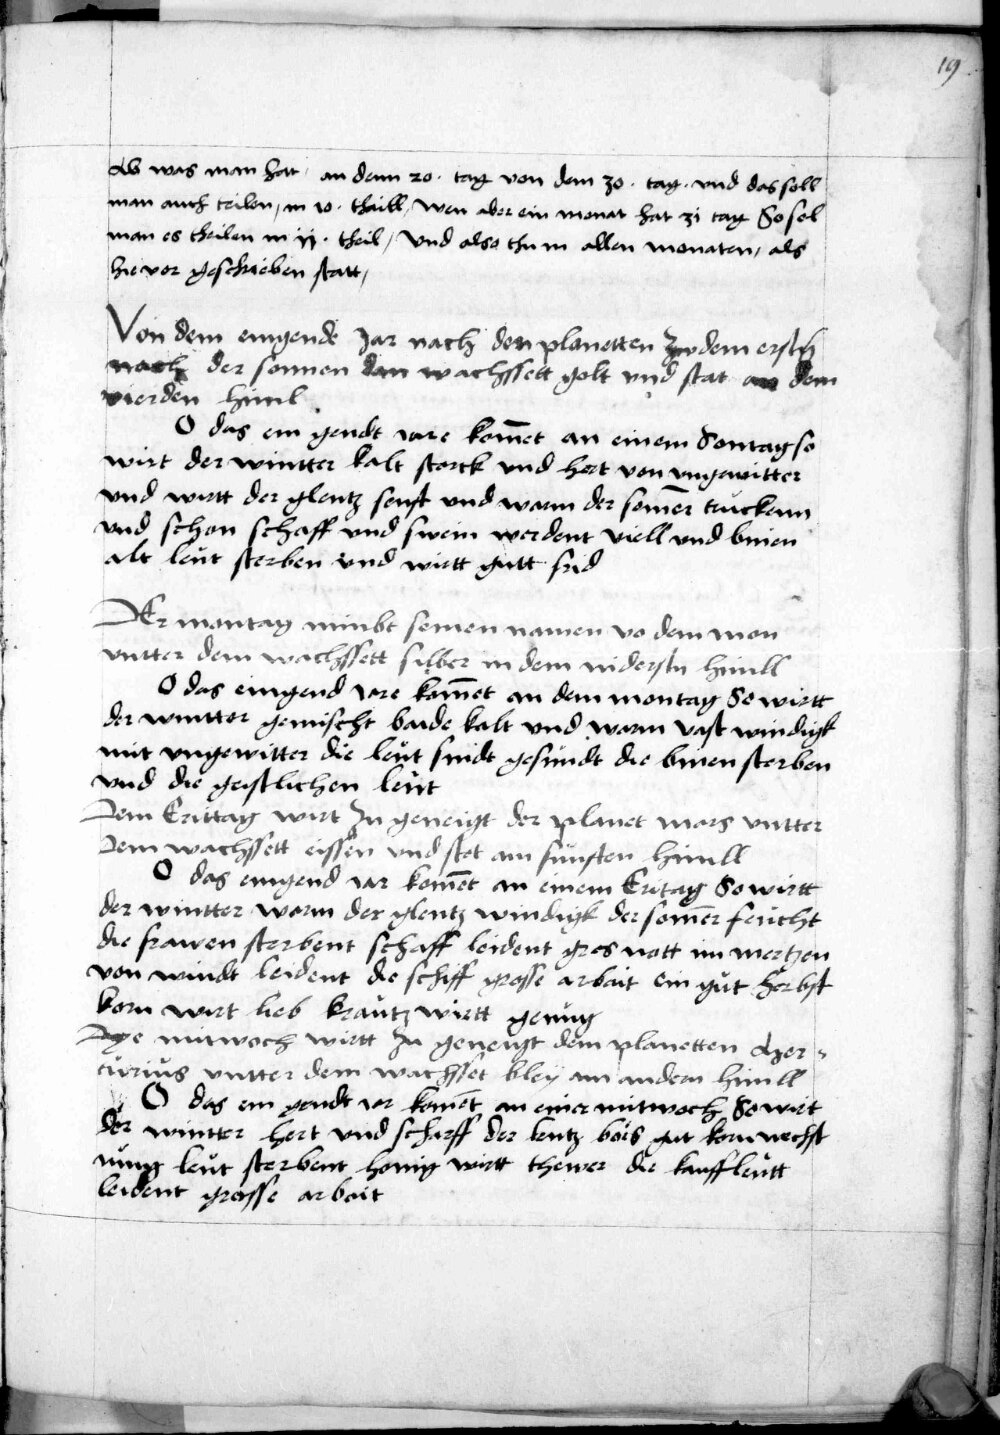 19
Ab was man hat an dem 20 · tag von dem 30 · tag · vnd das soll
man auch teilen / in 10 · thaill / wen aber ein monat hat 31 tag So sol
man es theilen in 11 · theil / Vnd also thu in allen monaten / als
hie vor geschrieben statt /
Von dem eingende Jar nach den planetten Zwdem ersten
nach der sonnen dan wachssett golt vnd stat an dem
vierden himl
O das ein gendt iare kom̄et an einem Sontag so
wirt der wintter kalt starck vnd hert von vngewitter
vnd wirtt der glentz senft vnd warm der som̄er truckenn
vnd schon schaff vnd swein werdent viell vnd binen
alt leut sterben vnd wirtt gutt frid
DEr montag nimbt seinen namen vo dem mon
vntter dem wachssett silber in dem nidersten himll
O das eingend iare kom̄et an dem montag So wirtt
der wintter gemischt baide kalt vnd warm vast windigk
mit vngewitter die leut sindt gesundt die binen sterben
vnd die geistlichen leut
Dem Erittag wirt Zu geneigt der planet mars vntter
dem wachssett eissen vnd stet am funften himll
O das eingend iar kom̄et an einem Eritag So wirtt
der wintter warm der glentz windigk der som̄er feucht
die frawen sterbent schaff leident gros nott im mertzen
von windt leident die schiff grosse arbait ein gut herbst
korn wirt lieb krautz wirtt genug
Dye mitwoch wirtt Zu geneigt dem planetten Mer-
curius vntter dem wachsset bley am andern himll
O das ein gendt iar kom̄et an einer mitwoch So wirt
der wintter hert vnd scharff der lentz bois gut korn wechst
iung leut sterbent honig wirtt thewer die kauffleutt
leident grosse arbait